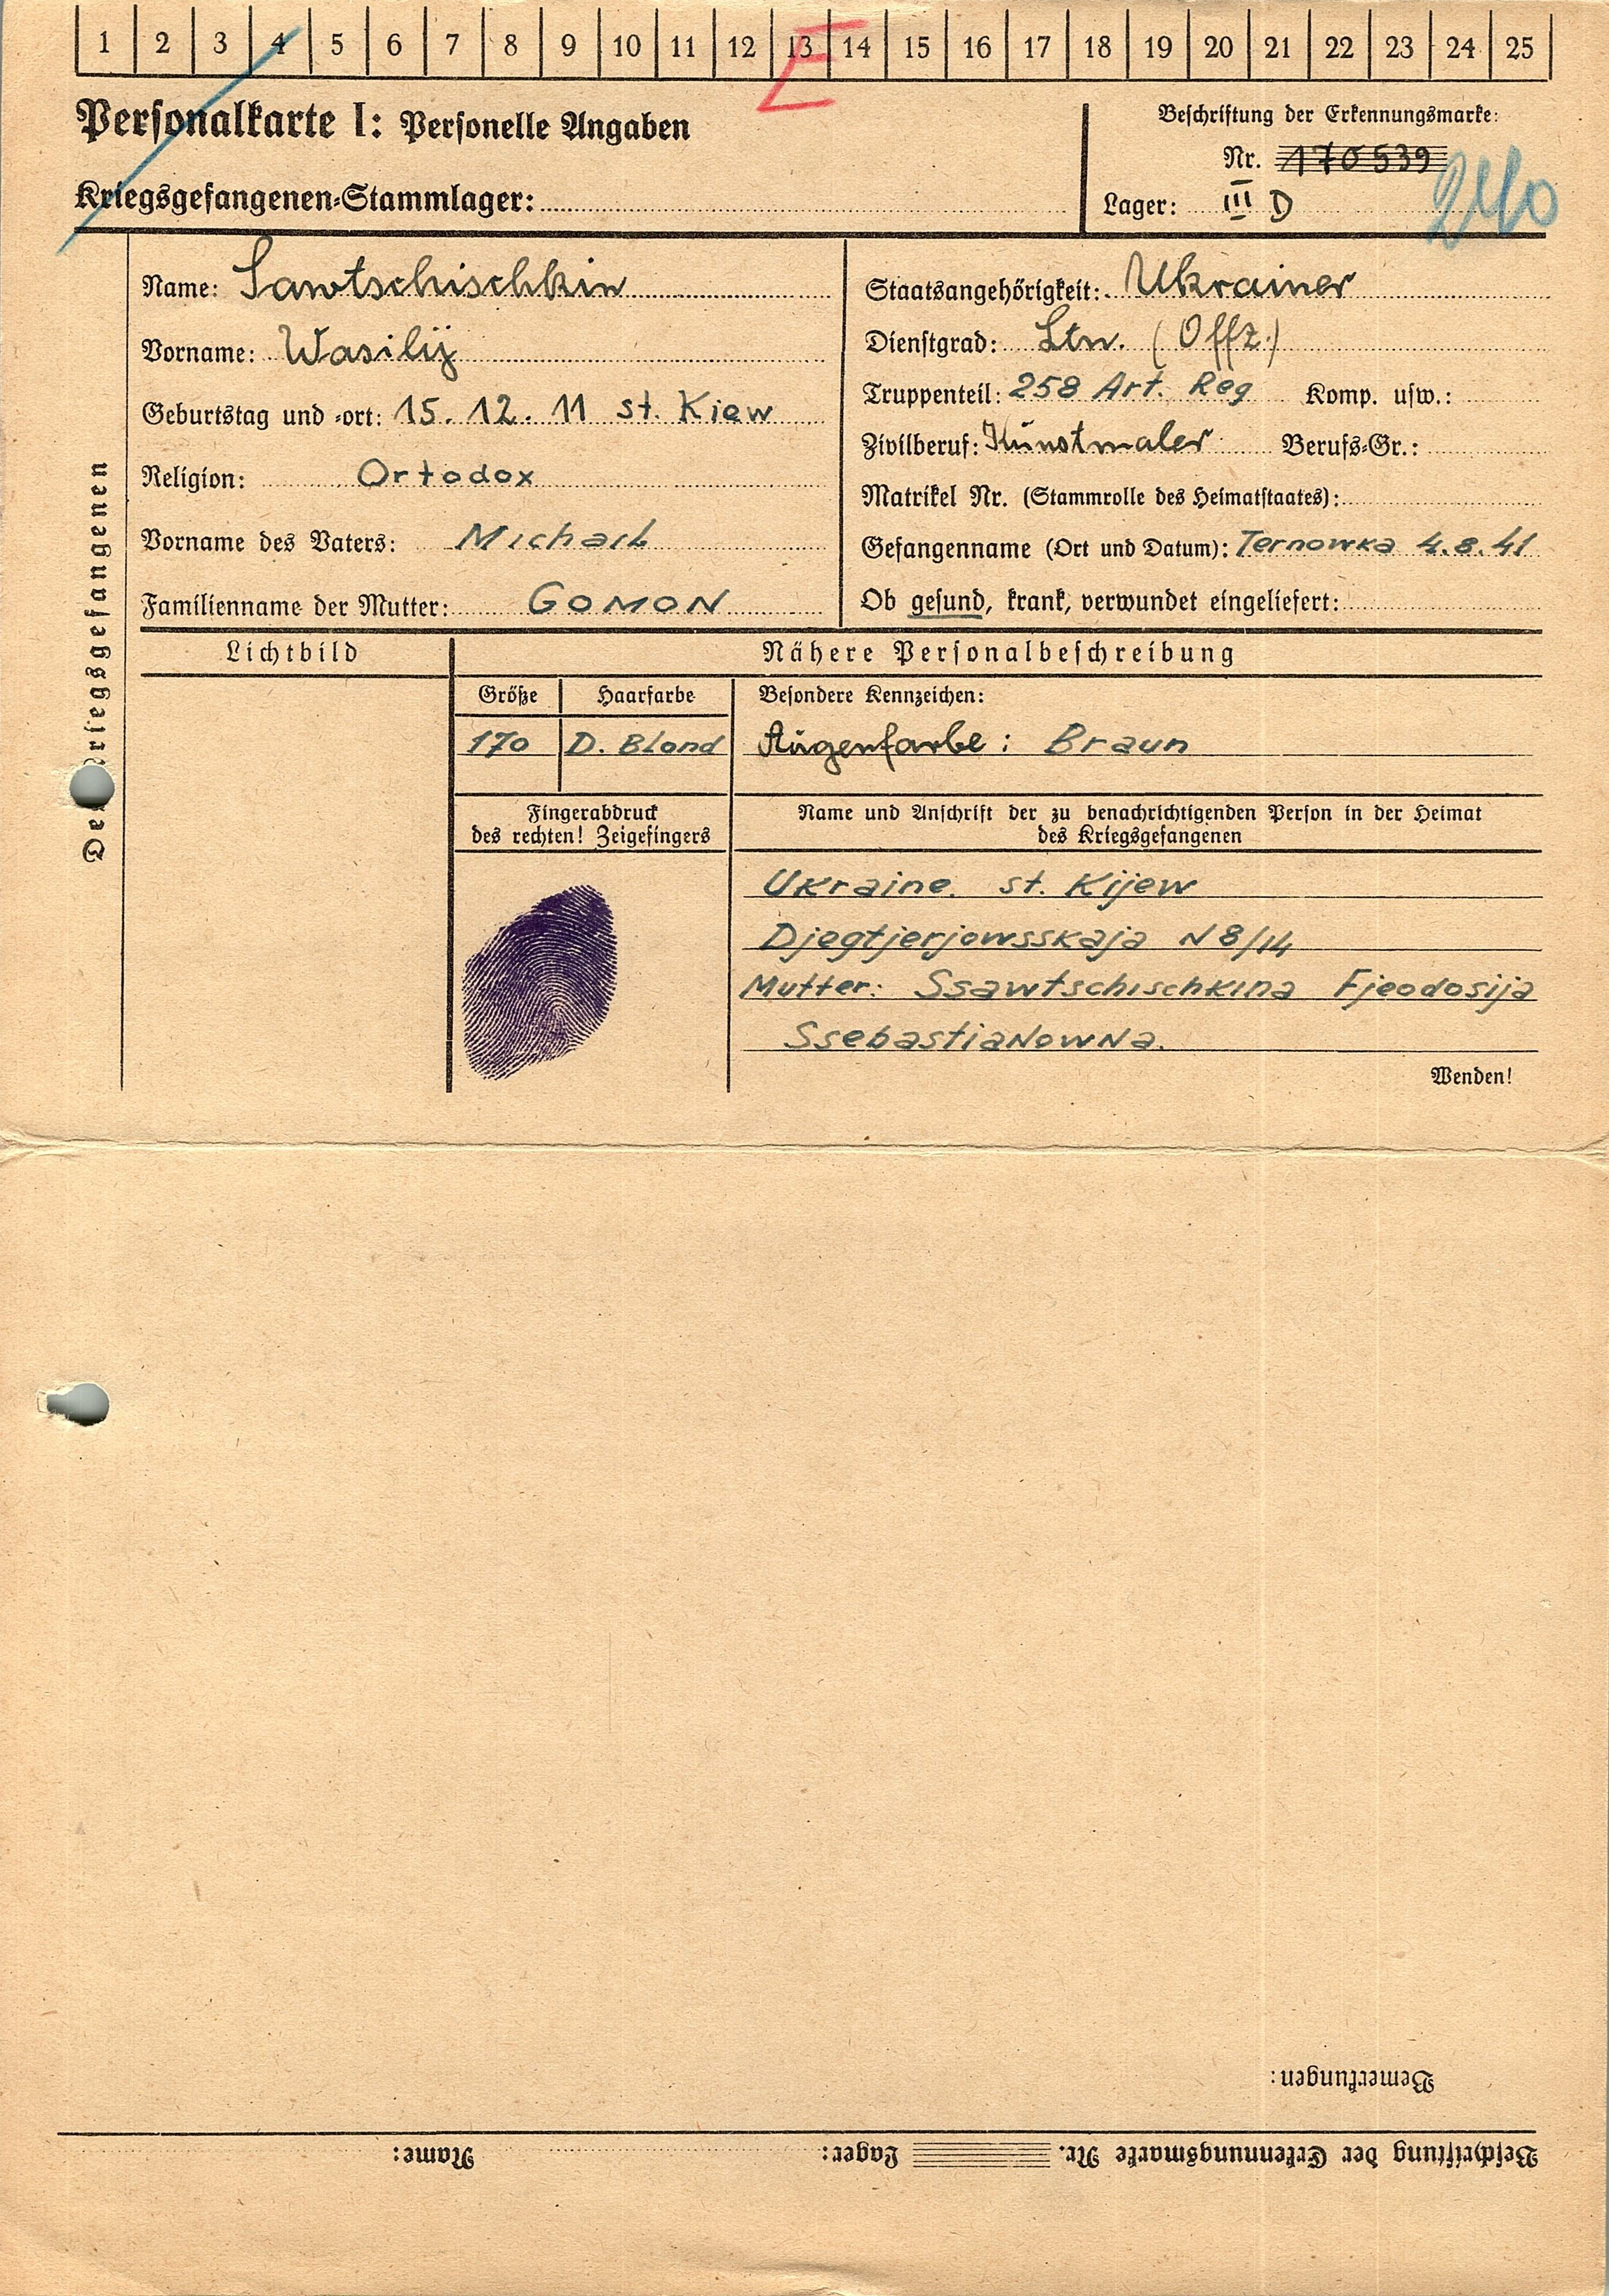 1 2 3 4 5 6 7 8 9 10 11 12 13 14 15 16 17 18 19 20 21 22 23 24 25
E
Personalkarte I: Personelle Angaben
Kriegsgefangenen-Stammlager:
Beschriftung der Erkennungsmarke:
Nr. 170539
Lager: III D
240
Des Kriegsgefangenen
Name: Sawtschischkin
Vorname: Wasilij
Geburtstag und -ort: 15. 12. 11 st. Kiew
Religion: Ortodox
Vorname des Vaters: Michail
Familienname der Mutter: GOMON
Staatsangehörigkeit: Ukrainer
Dienstgrad: Ltn. (Offz.)
Truppenteil: 258 Art. Reg Komp. usw.:
Zivilberuf: Kunstmaler Berufs-Gr.:
Matrikel Nr. (Stammrolle des Heimatstaates):
Gefangenname (Ort und Datum): Ternowka 4.8.41
Ob gesund, krank, verwundet eingeliefert:
Lichtbild
Nähere Personalbeschreibung
Größe Haarfarbe Besondere Kennzeichen:
170 D. Blond Augenfarbe: Braun
Fingerabdruck
des rechten! Zeigefingers
Name und Anschrift der zu benachrichtigenden Person in der Heimat
des Kriegsgefangenen
Ukraine. st. Kijew
Djegtjerjowsskaja N 8/14
Mutter: Ssawtschischkina Fjeodosija
Ssebastianowna.
Wenden!
Bemerkungen:
Beschriftung der Erkennungsmarke Nr. Lager: Name: